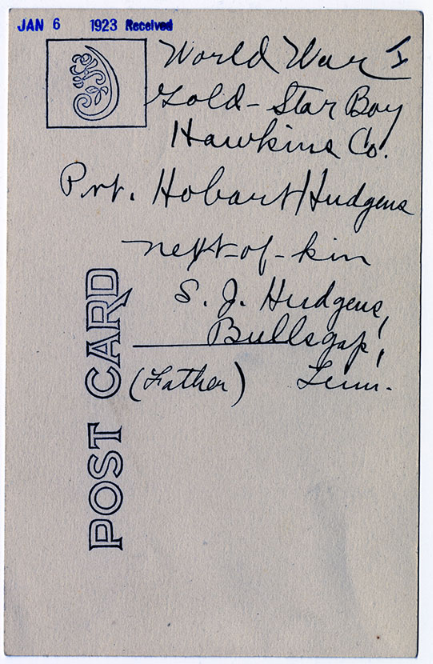 JAN 6 1923 Received
World War I
Gold-Star Boy
Hawkins Co.
Pvt. Hobart Hudgens
next-of-kin
S. J. Hudgens,
Bullsgap,
(Father) Tenn.
POST CARD